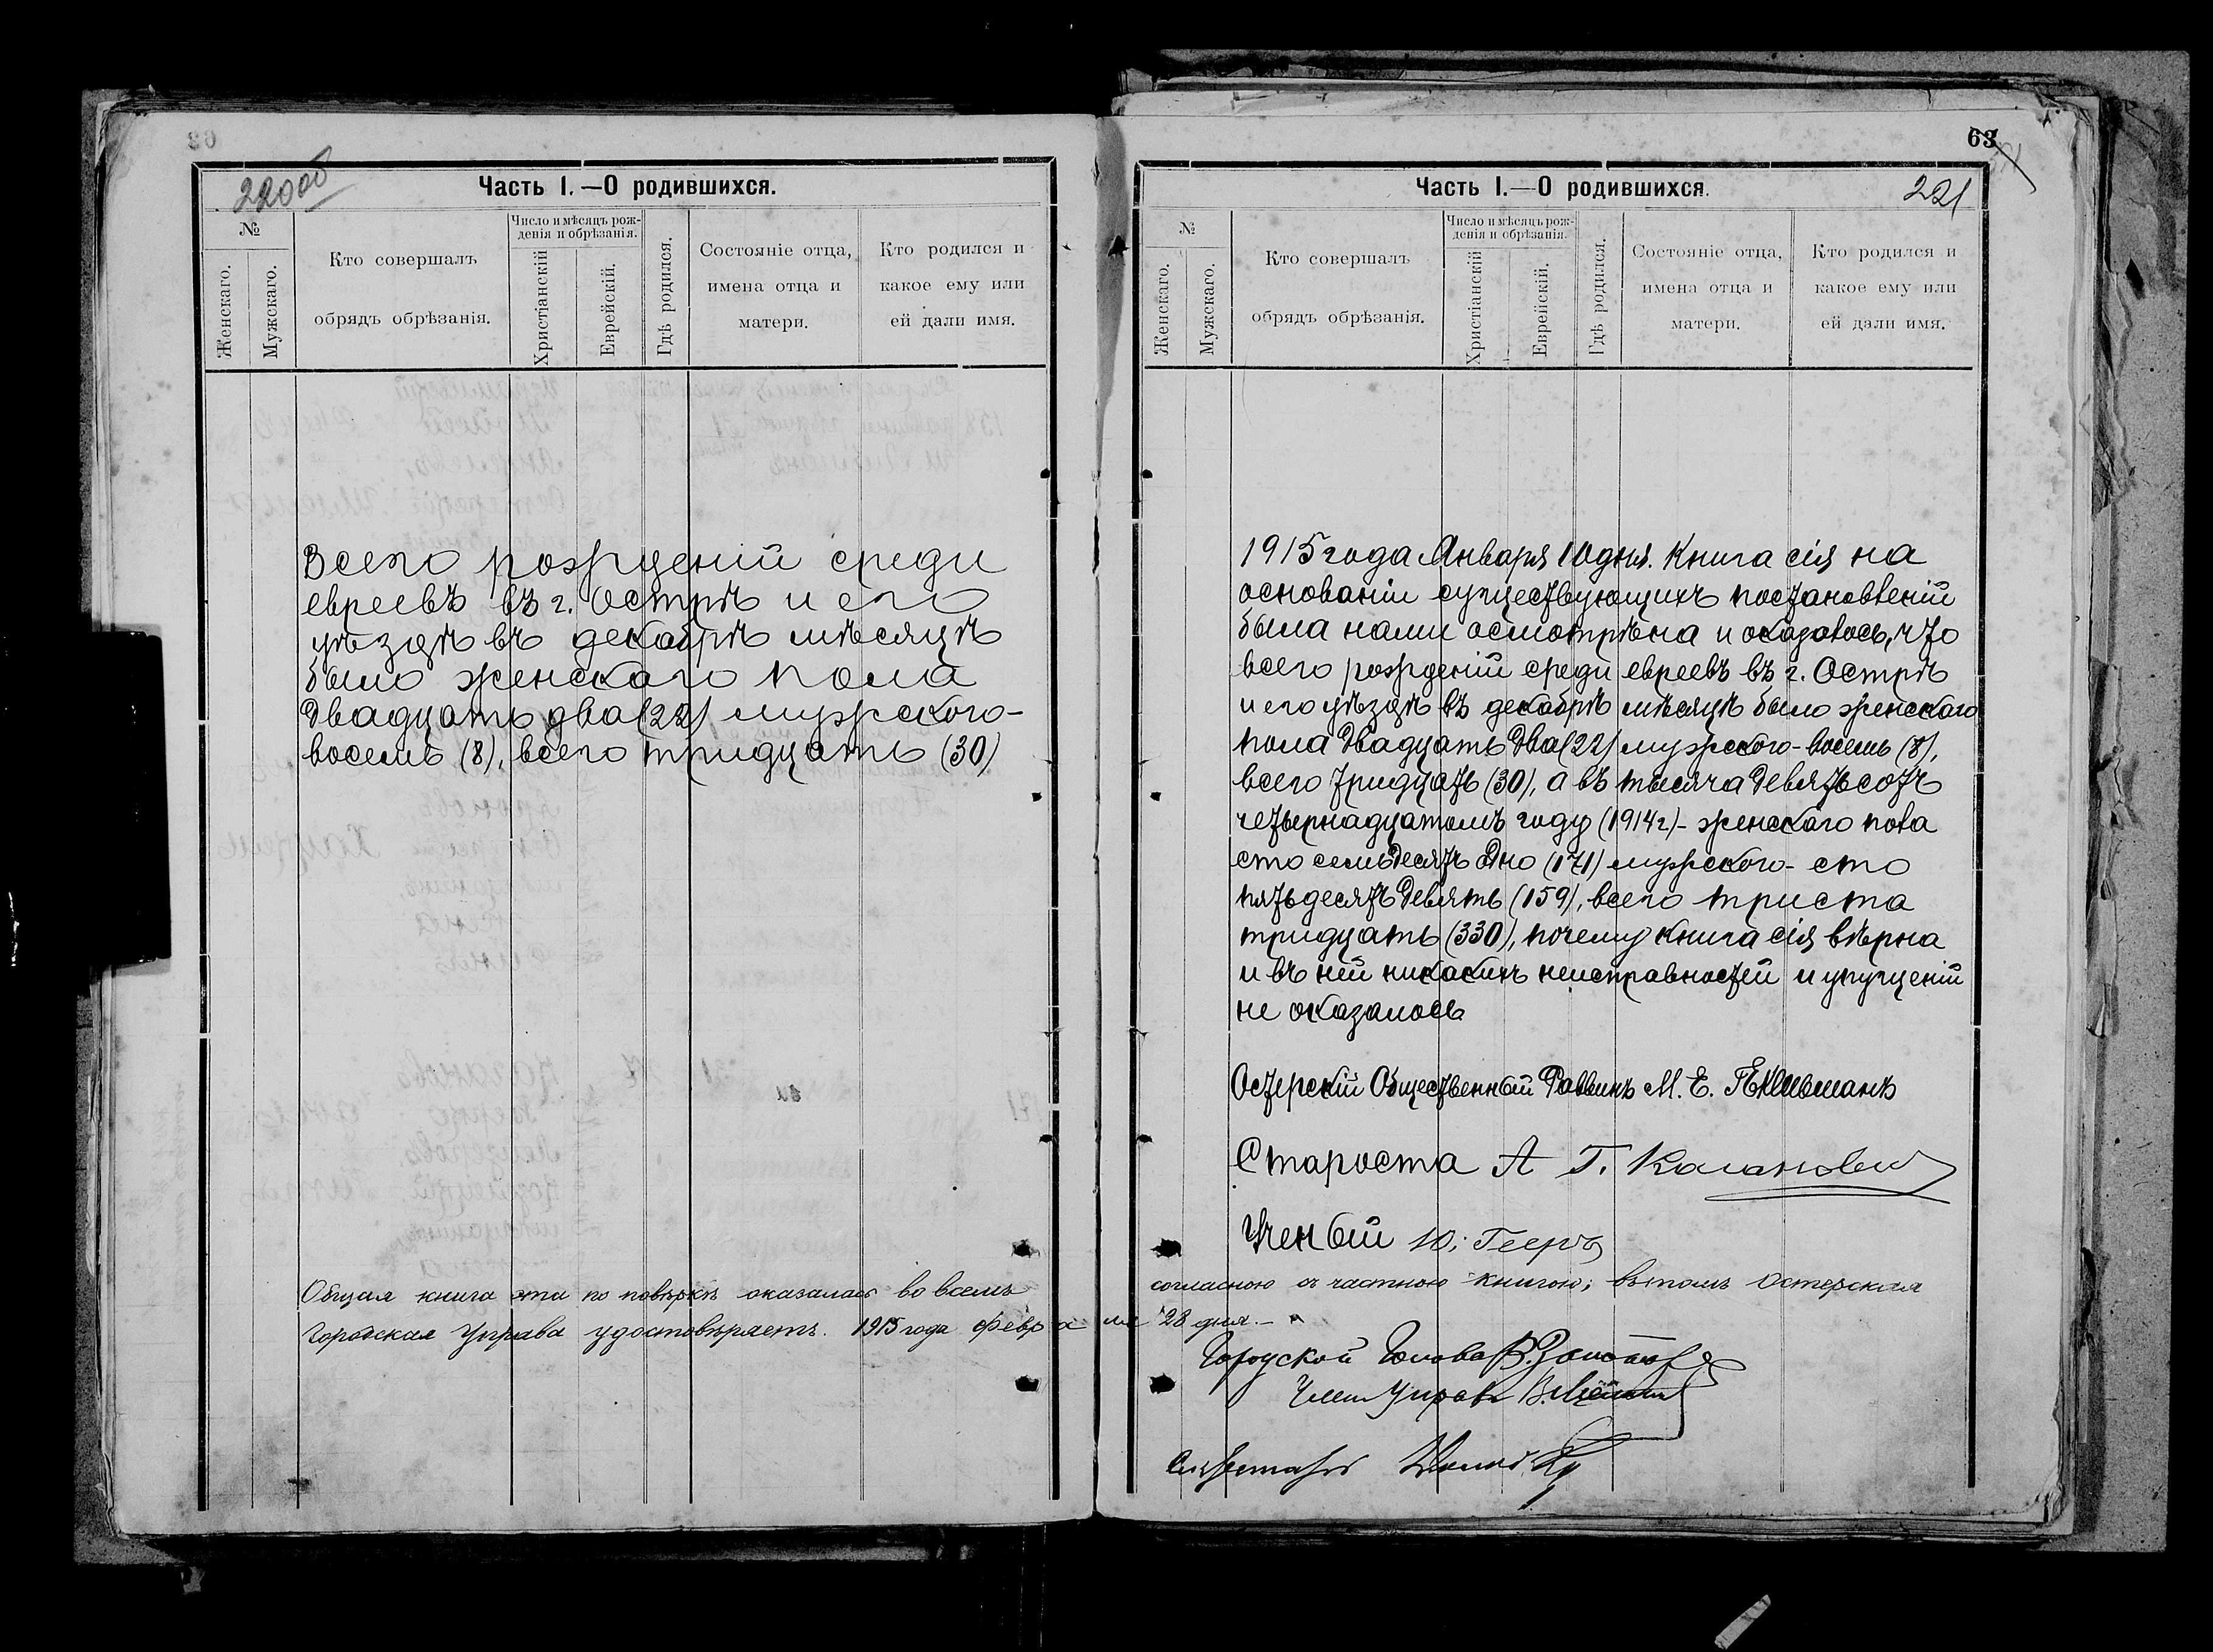 220 об
Часть I. — О родившихся.
№
Женскаго.
Мужскаго.
Кто совершалъ
обрядъ обрѣзанія.
Число и мѣсяцъ рож-
денія и обрѣзанія.
Христіанскій
Еврейскій.
Гдѣ родился.
Состояніе отца,
имена отца и
матери.
Кто родился и
какое ему или
ей дали имя.
Всего рожденій среди
евреевъ въ г. Острѣ и его
уѣздѣ въ декабрѣ мѣсяцѣ
было женскаго пола
двадцать два (22) мужского-
восемь (8), всего тридцать (30)
63
221
Часть I. — О родившихся.
№
Женскаго.
Мужскаго.
Кто совершалъ
обрядъ обрѣзанія.
Число и мѣсяцъ рож-
денія и обрѣзанія.
Христіанскій
Еврейскій.
Гдѣ родился.
Состояніе отца,
имена отца и
матери.
Кто родился и
какое ему или
ей дали имя.
1915 года Января 10 дня. Книга сія на
основаніи существующихъ постановленій
была нами осмотрѣна и оказалось, что
всего рожденій среди евреевъ въ г. Острѣ
и его уѣздѣ въ декабрѣ мѣсяцѣ было женскаго
пола двадцать два (22) мужского - восемь (8),
всего тридцать (30), а въ тысяча девятьсотъ
четырнадцатомъ году (1914 г) - женскаго пола
сто семьдесятъ одно (171) мужского - сто
пятьдесятъ девять (159), всего триста
тридцать (330), почему книга сія вѣрна
и въ ней никакихъ неисправностей и упущеній
не оказалось
Остерскій Общественный Раввинъ М. Е.
Староста А Г.
Ученый Ю. Гееръ
Общая книга эта по повѣркѣ оказалась во всемъ согласною съ частною книгою; въ томъ Остерская
Городская Управа удостовѣряетъ. 1915 года Февраля 28 дня.-
Городской Голова В.
Членъ Управы В.
Секретарь